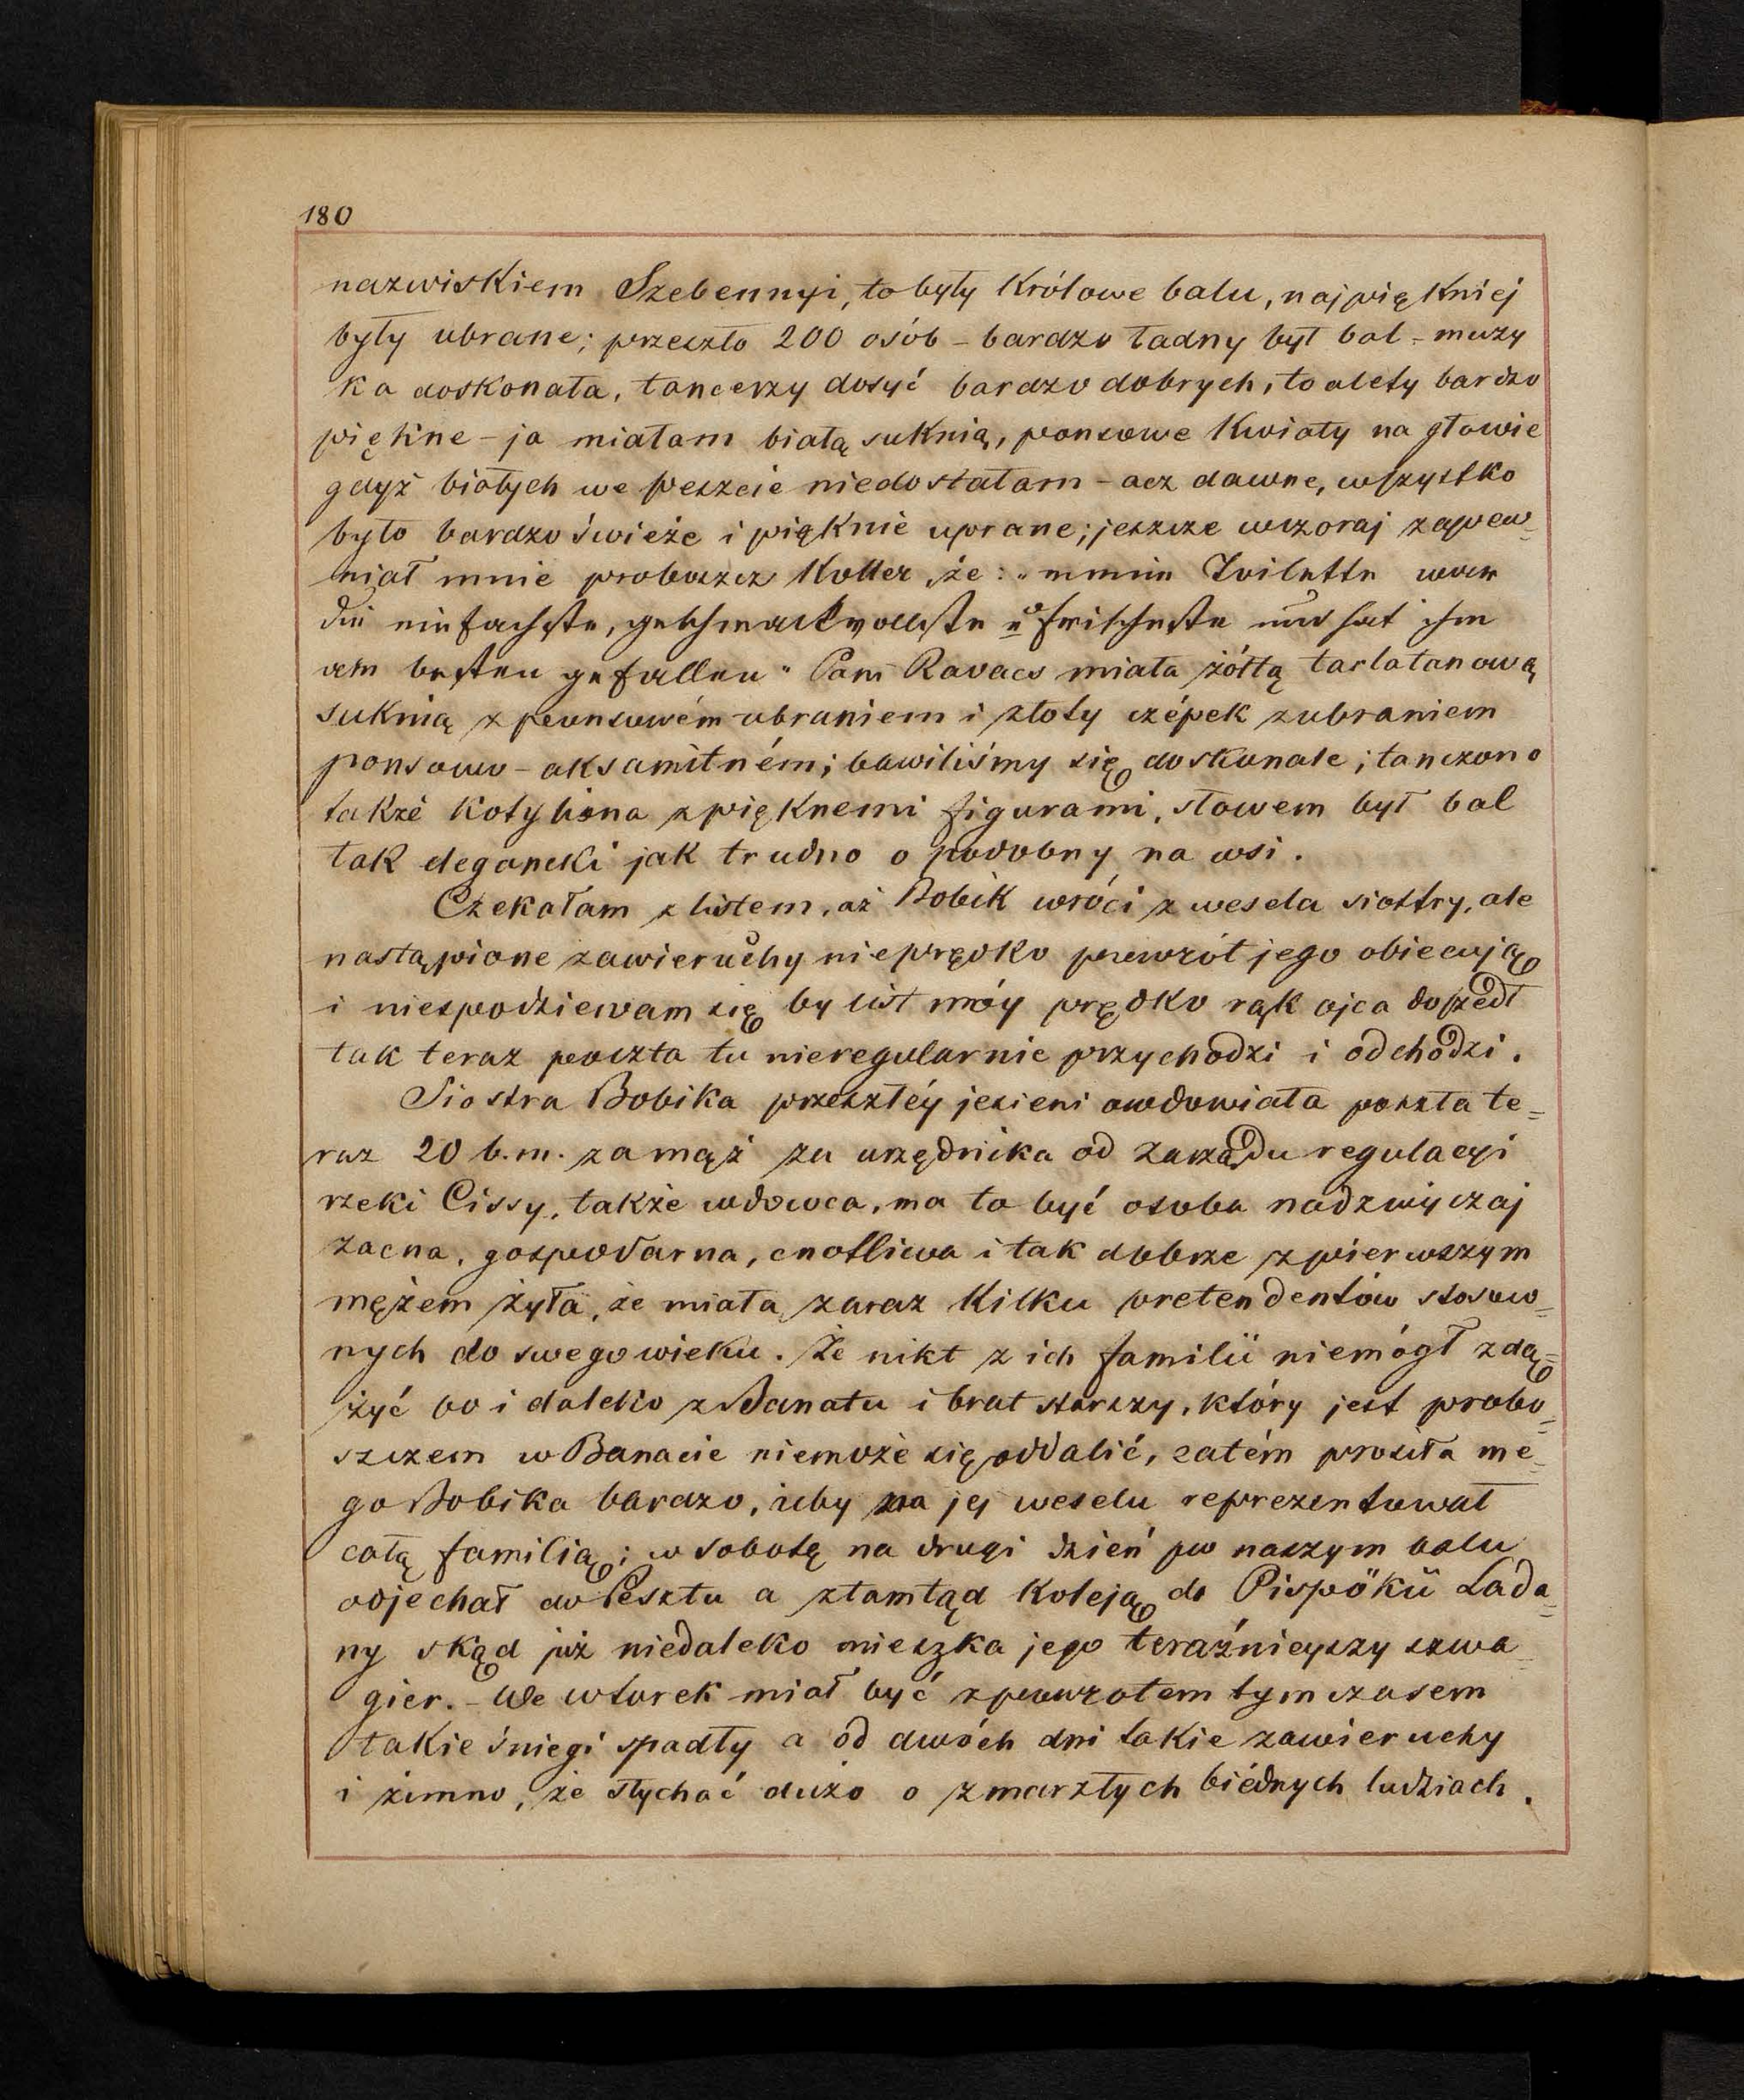 180
nazwiskiem Szebennyi, to były Królowe balu, najpiękniej
były ubrane; przeszło 200 osób – bardzo ładny był bal – muzy
ka doskonała, tancerzy dosyć bardzo dobrych, toalety bardzo
piękne – ja miałam białą suknią, ponsowe kwiaty na głowie
gdyż białych we Peszcie niedostałam – acz dawne, wszystko
było bardzo świeże i pięknie uprane; jeszcze wczoraj zapew=
niał mnie proboszcz Koller, że: „meine Toilette war
die einfachste, geschmackvollste u frischeste und hat ihm
am besten gefallen" Pani Kovacs miała żółtą tarlatanową
suknią z ponsowém ubraniem i złoty czépek z ubraniem
ponsowo – aksamitném; bawiliśmy się doskonale; tańczono
także kotyliona z pięknemi figurami, słowem był bal
tak elegancki jak trudno o podobny na wsi.
Czekałam z listem, aż Bobik wróci z wesela siostry, ale
nastąpione zawieruchy nieprędko powrót jego obiecują
i niespodziewam się by list móy prędko rąk ojca doszedł
tak teraz poczta tu nieregularnie przychodzi i odchodzi.
Siostra Bobika przeszłéy jesieni owdowiała poszła te=
raz 20 b.m. zamąż za urzędnika od zarządu regulacyi
rzeki Cissy, także wdowca, ma to być osoba nadzwyczaj
zacna, gospodarna, cnotliwa i tak dobrze z pierwszym
mężem żyła, że miała zaraz kilku pretendentów stosow=
nych do swego wieku. Że nikt z ich familii niemógł zdą=
żyć bo i daleko z Banatu i brat starszy, który jest probo=
szczem w Banacie niemoże się oddalić, zatém prosiła me=
go Bobika bardzo, żeby na jej weselu reprezentował
całą familią; w sobotę na drugi dzień po naszym balu
odjechał do Pesztu a ztamtąd koleją do Pispökü Lada=
ny skąd już niedaleko mieszka jego teraźnieyszy szwa=
gier. – We wtorek miał być z powrotem tymczasem
takie śniegi spadły a od dwóch dni takie zawieruchy
i zimno, że słychać dużo o zmarzłych biédnych ludziach.